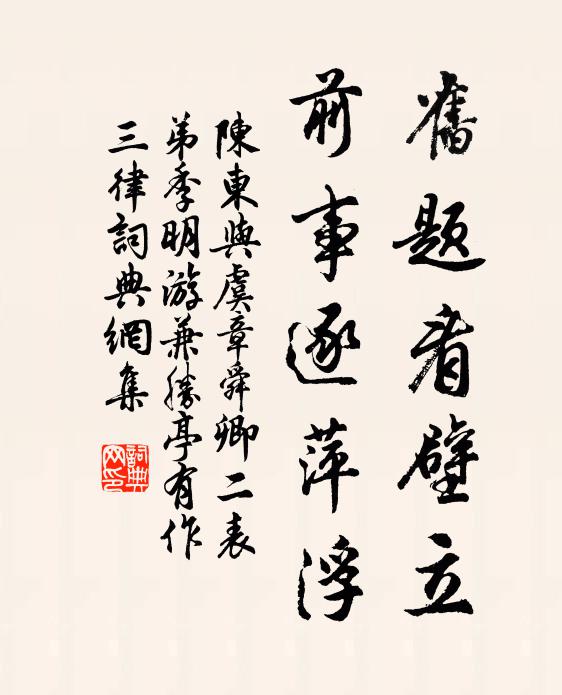 舊題看壁立
前事逐萍浮
陳東與虞章舜卿二表
弟季明游兼勝亭有作
三律詞典網集
詞典
网印